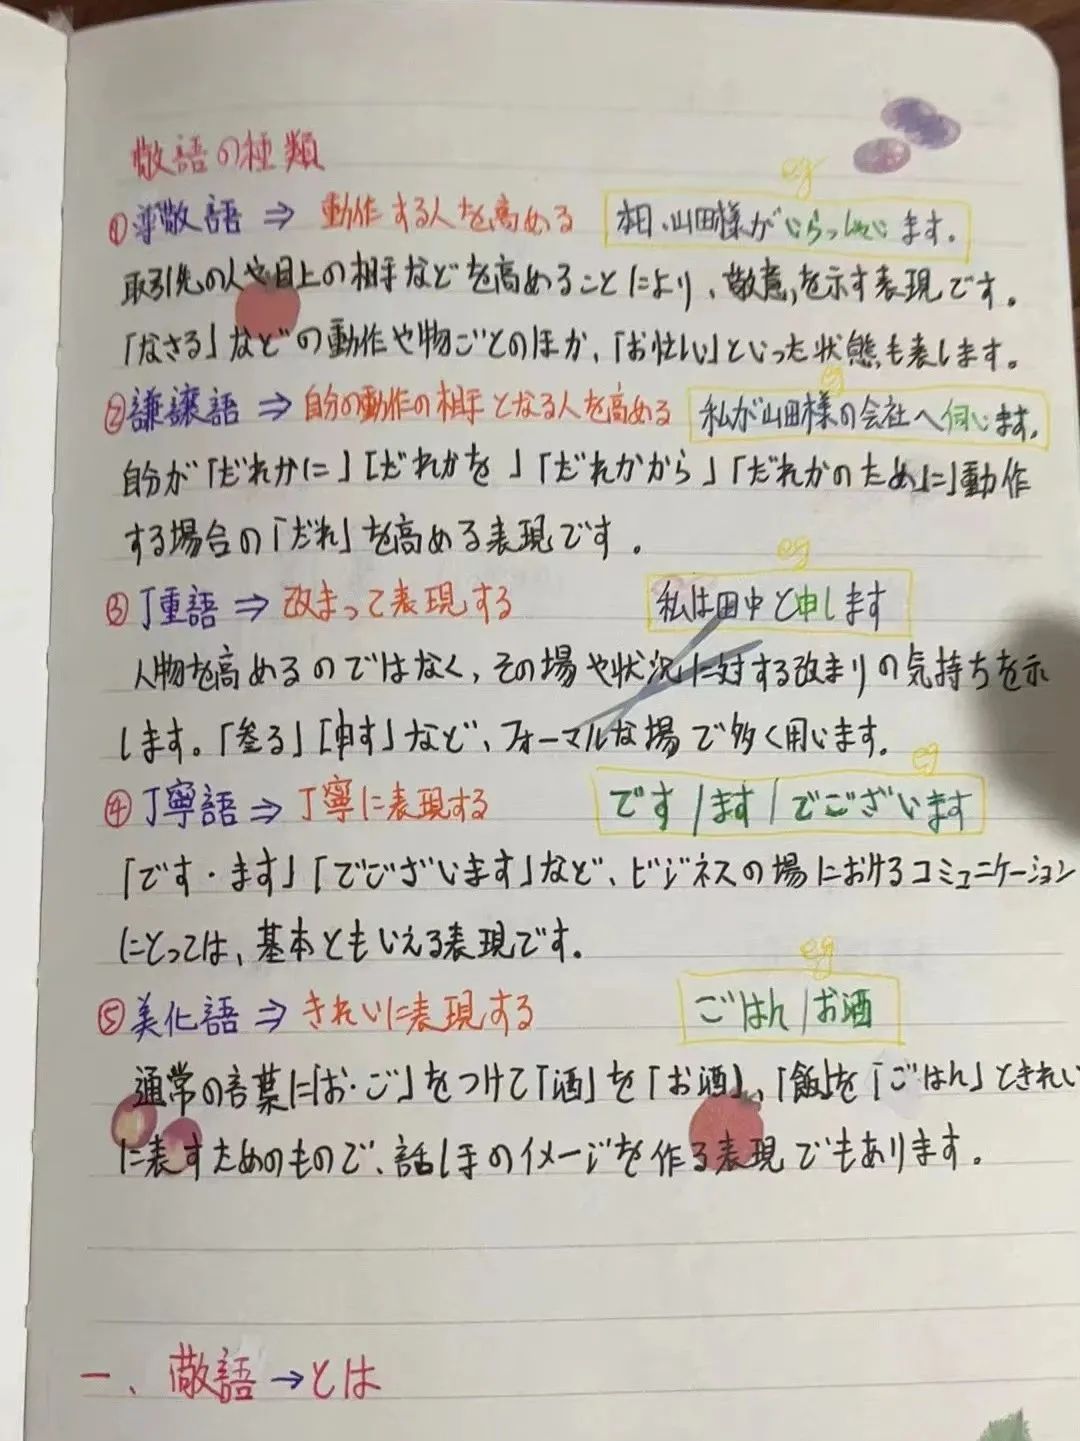 敬語の種類
eg
①尊敬語 ⇒ 動作する人を高める 本日、山田様がいらっしゃいます。
取引先の人や目上の相手などを高めることにより、敬意を示す表現です。
「なさる」などの動作や物ごとのほか、「お忙しい」といった状態も表します。
eg
②謙譲語 ⇒ 自分の動作の相手となる人を高める 私が山田様の会社へ伺います。
自分が「だれかに」「だれかを」「だれかから」「だれかのために」動作
する場合の「だれ」を高める表現です。
eg
③丁重語 ⇒ 改まって表現する 私は田中と申します
人物を高めるのではなく、その場や状況に対する改まりの気持ちを示
します。「参る」「申す」など、フォーマルな場で多く用います。
eg
④丁寧語 ⇒ 丁寧に表現する です/ます/でございます
「です・ます」「でございます」など、ビジネスの場におけるコミュニケーション
にとっては、基本ともいえる表現です。
eg
⑤美化語 ⇒ きれいに表現する ごはん/お酒
通常の言葉に「お・ご」をつけて「酒」を「お酒」、「飯」を「ごはん」ときれい
に表すためのもので、話し手のイメージを作る表現でもあります。
一、敬語→とは